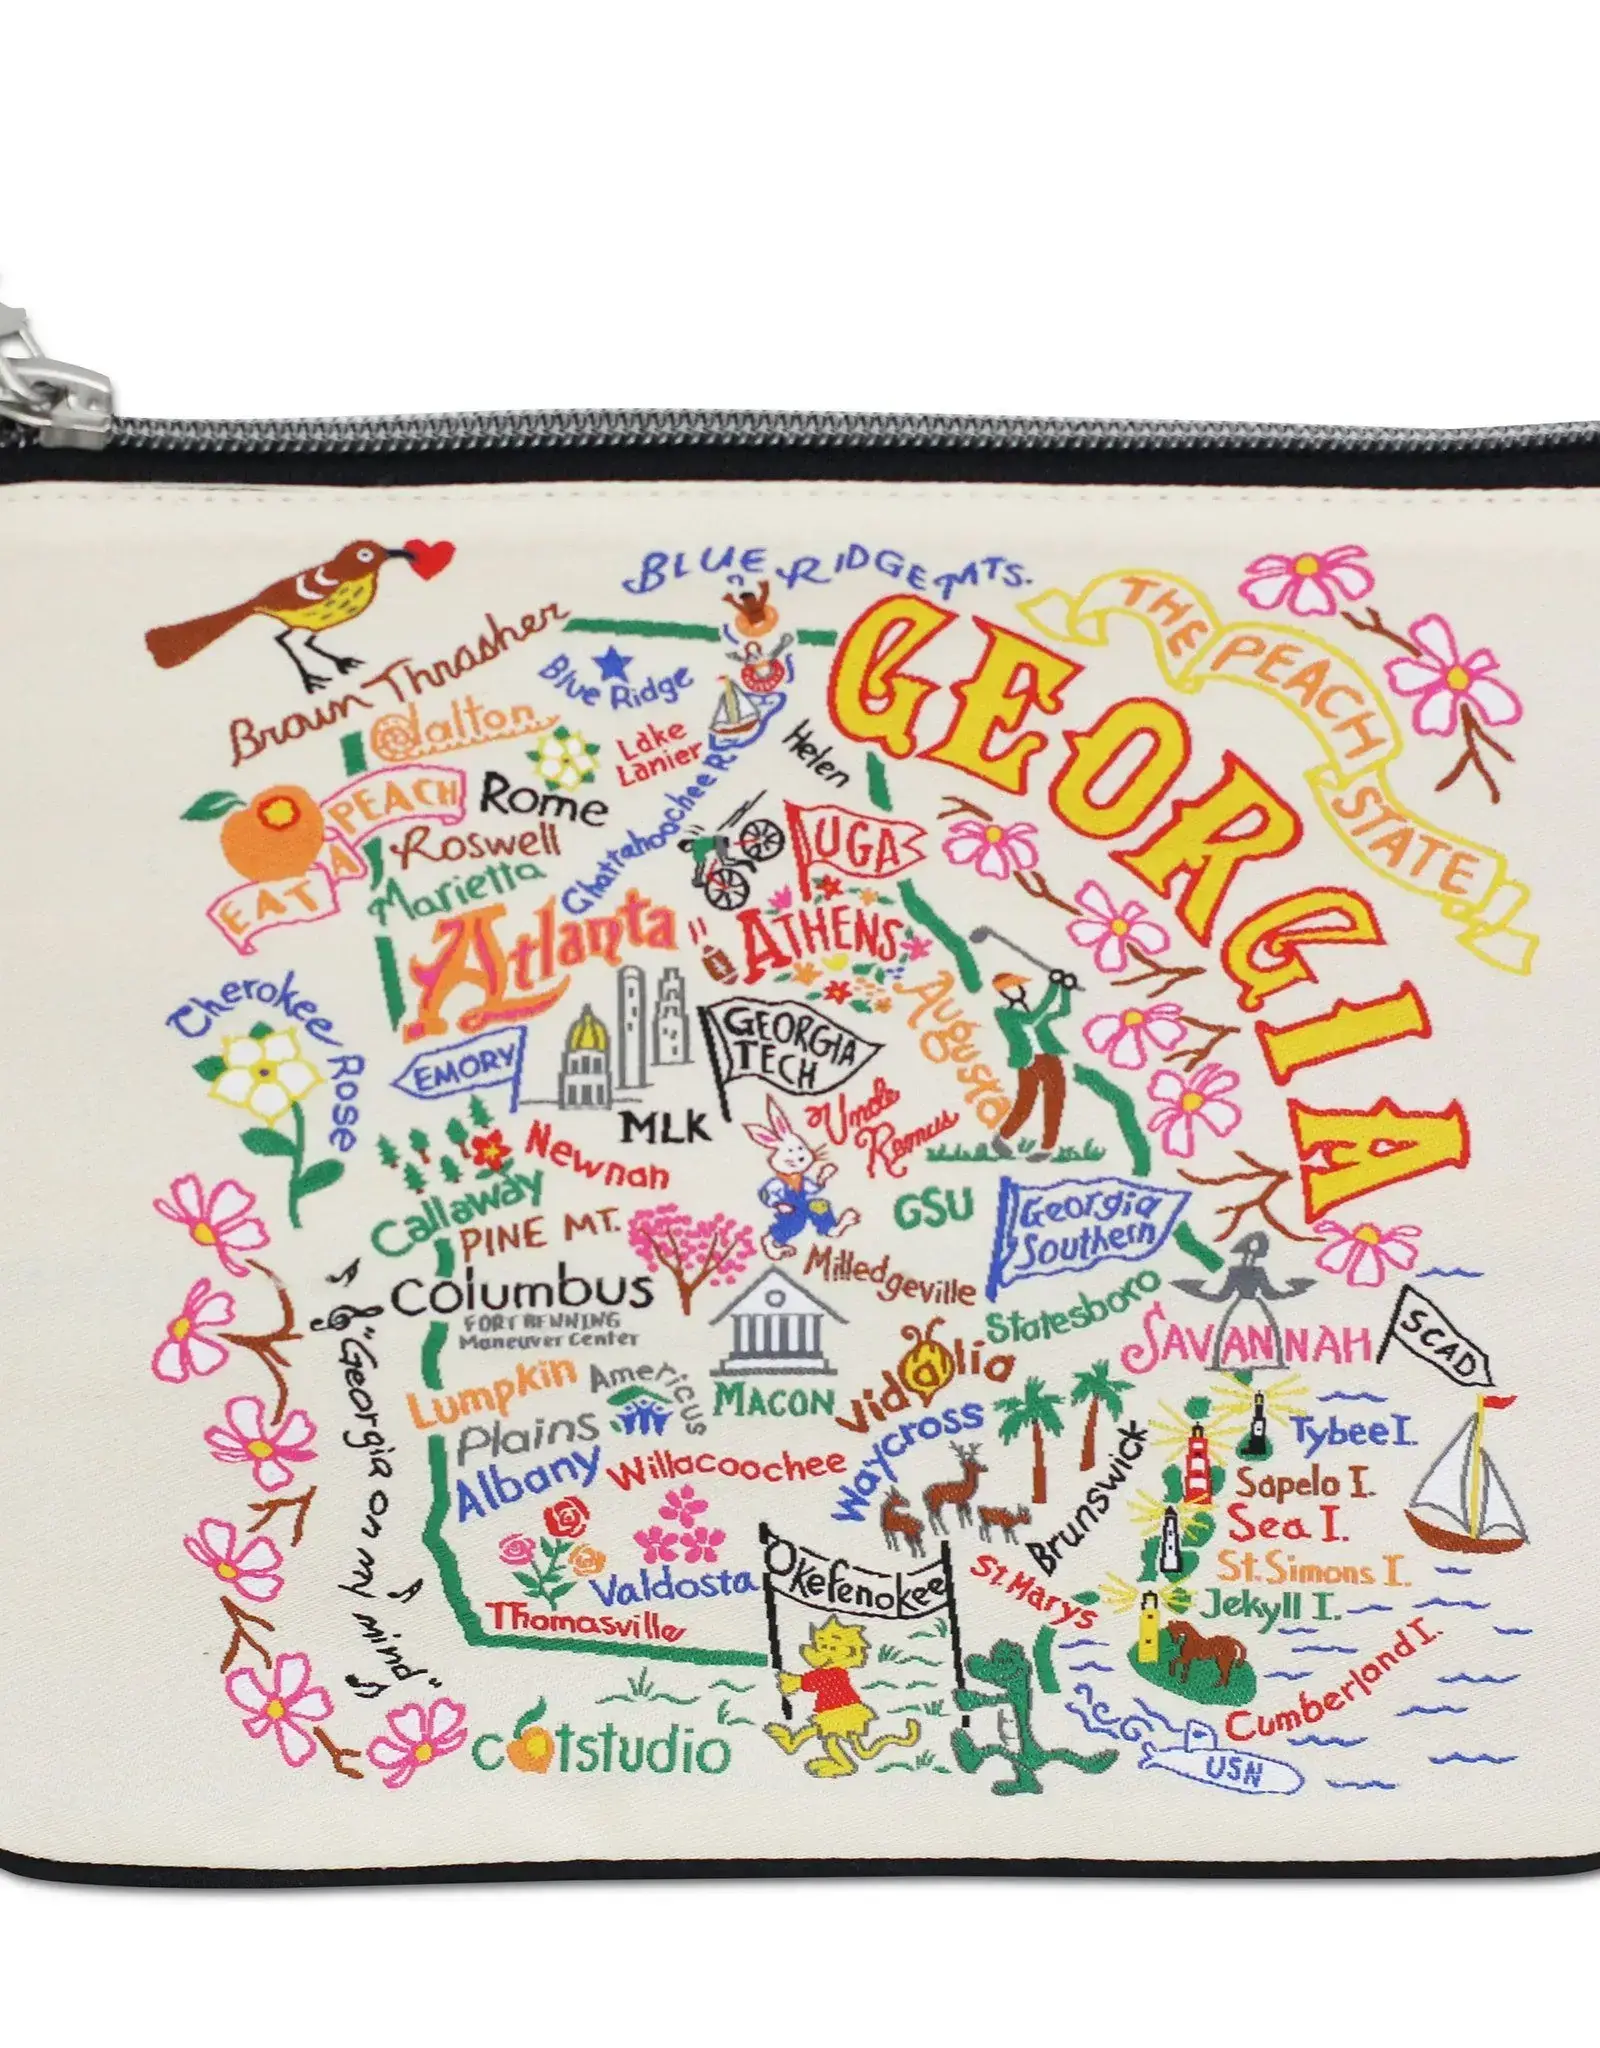 BLUE RIDGE MTS.
GEORGIA
THE PEACH STATE
Brown Thrasher
Blue Ridge
Dalton
Lake
Lanier
Helen
EAT A PEACH
Rome
Roswell
Marietta
Chattahoochee R.
UGA
Atlanta
ATHENS
Augusta
Cherokee Rose
EMORY
GEORGIA
TECH
MLK
Uncle
Remus
Newnan
Callaway
PINE MT.
GSU
Georgia
Southern
Columbus
FORT BENNING
Maneuver Center
Milledgeville
Statesboro
SAVANNAH
SCAD
"Georgia on my mind"
Lumpkin
Americus
MACON
Vidalia
Plains
Albany
Willacoochee
Waycross
Brunswick
Tybee I.
Sapelo I.
Sea I.
St. Simons I.
Jekyll I.
Cumberland I.
Valdosta
Thomasville
Okefenokee
St. Marys
catstudio
USN